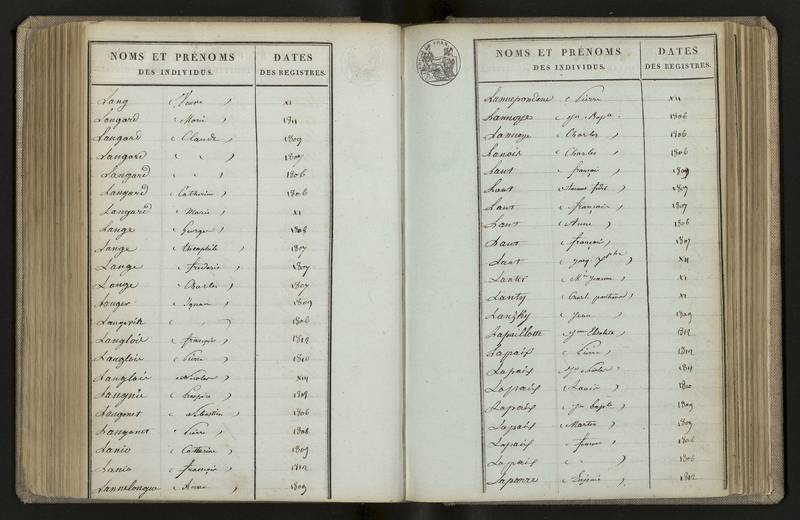 NOMS ET PRÉNOMS
DES INDIVIDUS.
DATES
DES REGISTRES.
Lang (Pierre) XI
Langard (Marie) 1811
Langard (Claude) 1809
Langard ( ) 1807
Langard ( ) 1806
Langard (Catherine) 1806
Langard (Marie) XI
Lange (George) 1808
Lange (Théophile) 1807
Lange (frédéric) 1807
Lange (Charles) 1807
Langer (Ignace) 1809
( ) 1806
Langlois (françois) 1812
Langlois (Pierre) 1810
Langlois (Nicolas) XIII
Langonet (Sébastien) 1806
Langonet (Pierre) 1808
Lanio (Catherine) 1809
Lanio (françois) 1812
Lannelongue (Anne) 1809
NOMS ET PRÉNOMS
DES INDIVIDUS.
DATES
DES REGISTRES.
(Pierre) XII
Lannoye (Jn Bapte) 1806
Lannoye (Charles) 1806
Lanois (Charles) 1806
Lant (françois) 1809
Lant 1807
Lant (françois) 1807
Lant (Anne) 1806
Lant (françois) 1807
Lant XII
Lanter (Mie Jeanne) XI
Lanty XI
Lanzky (Jean) 1809
Lapaillotte 1812
Lapaix (Pierre) 1812
Lapaix (Jn Nicolas) 1811
Lapaix (Louis) 1810
Lapaix (Jn Bapte) 1809
Lapaix (Martin) 1809
Lapaix 1806
Lapaix ( ) 1806
Laparre (Eugénie) 1812